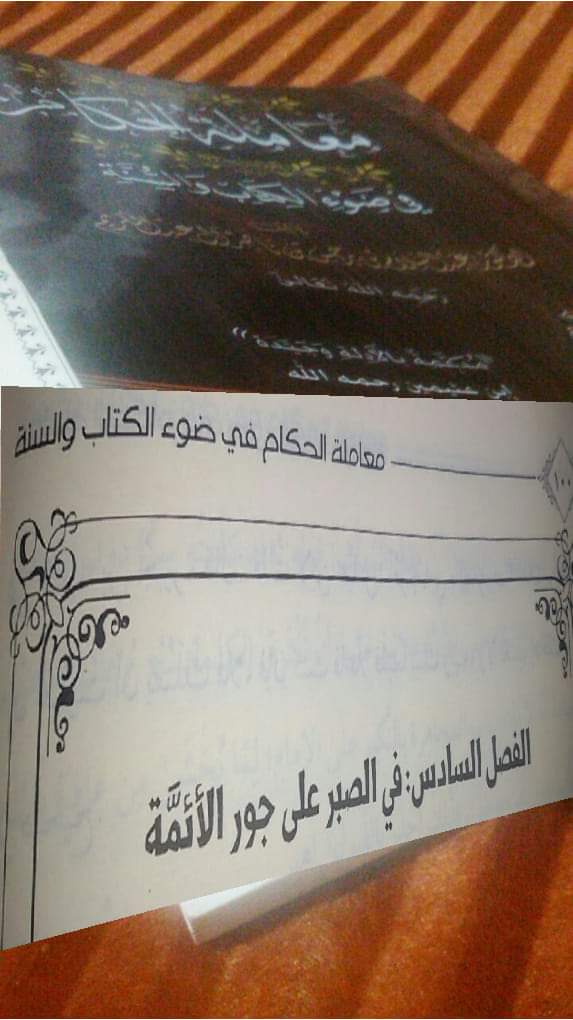 معاملة الحكام
في ضوء الكتاب والسنة
رحمه الله تعالى
رحمه الله
معاملة الحكام في ضوء الكتاب والسنة
١٠٠
الفصل السادس: في الصبر على جور الأئمَّة